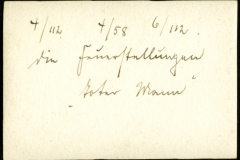 4/112 4/58 6/112.
die Feuerstellungen
„Toter Mann"